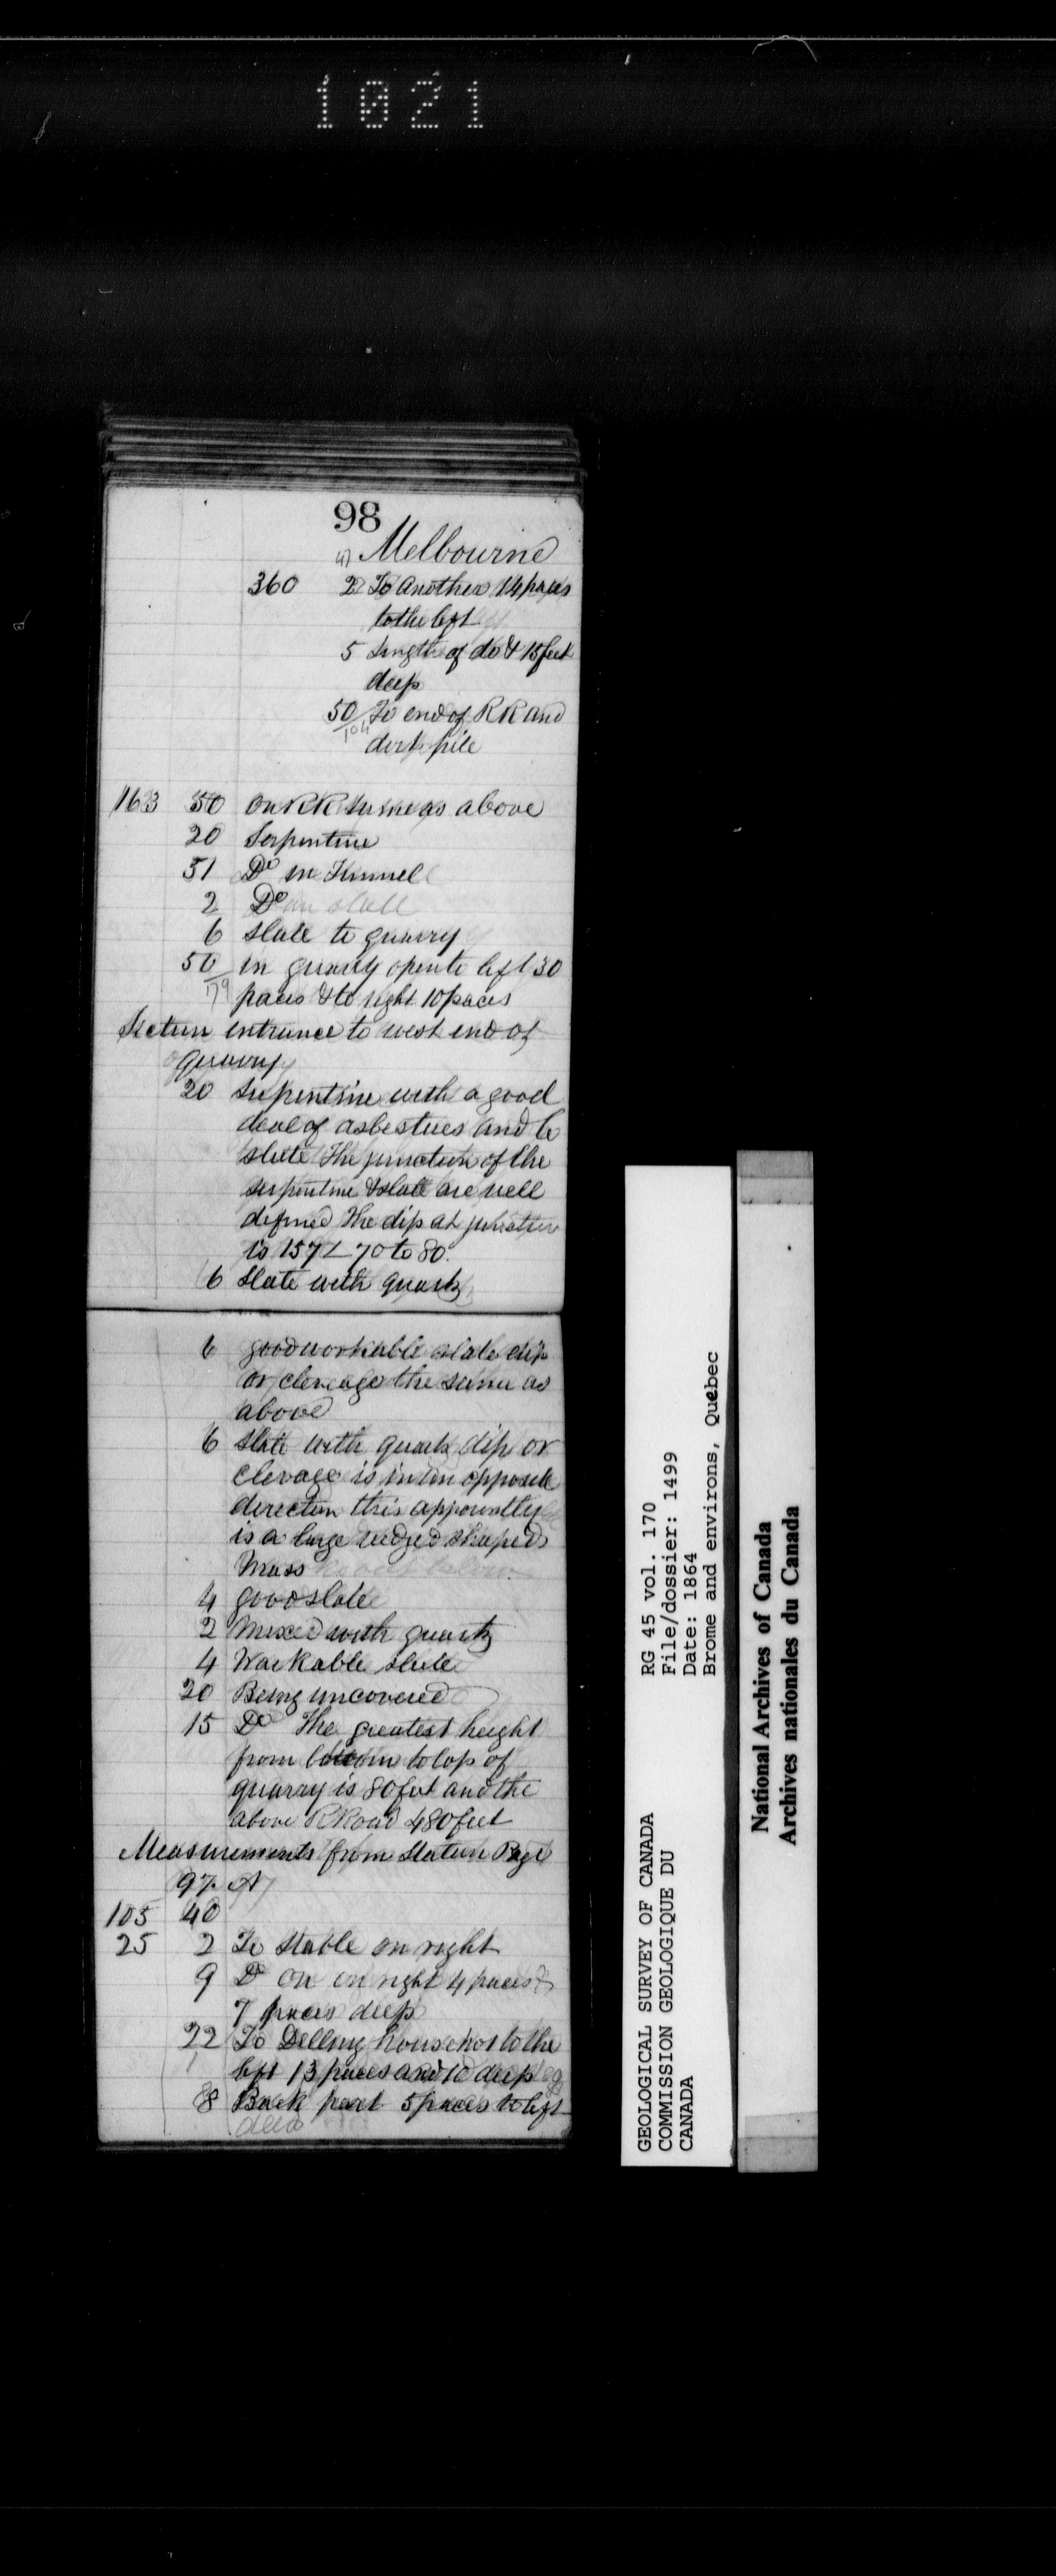 1021
98
Melbourne
360 2 To Another 14 paces
to the left
5 Length of do & 15 feet
deep
50 To end of RR and
104
dirt pile
163 50 On RR same as above
20 Serpentine
51 Do in Tunnel
2 Do
6 Slate to quarry
50 in quarry open to left 30
179
paces & to right 10 paces
Section entrance to west end of
quarry
20 Serpentine with a good
deal of asbestues and to
slate The junction of the
serpentine & slate are well
defined The dip at junction
is 157 ∠ 70 to 80.
6 Slate with quartz
6 good workable slate dip
or clevage the same as
above
6 Slate with quartz dip or
clevage is in an opposite
direction this appountly
is a large wedged shaped
Mass
4 good slate
2 Mixed with quartz
4 Workable slate
20 Being uncovered
15 Do The greatest height
from bottom to top of
quarry is 80 feet and the
above R Road 480 feet
Measurements from Station Page
97 A
105 40
25 2 To Stable on right
9 Do on on right 4 paces &
7 paces deep
22 To Delling house not to the
left 13 paces and 10 deep
8 Back part 5 paces to left
deep
GEOLOGICAL SURVEY OF CANADA
COMMISSION GEOLOGIQUE DU
CANADA
RG 45 vol. 170
File/dossier: 1499
Date: 1864
Brome and environs, Quebec
National Archives of Canada
Archives nationales du Canada